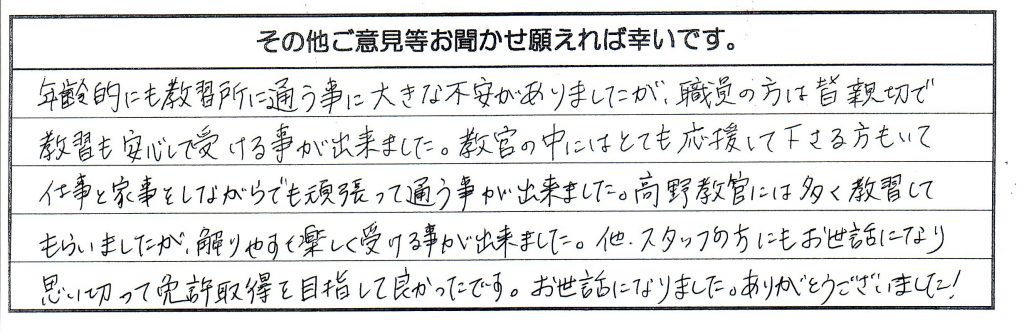 その他ご意見等お聞かせ願えれば幸いです。
年齢的にも教習所に通う事に大きな不安がありましたが、職員の方は皆親切で
教習も安心して受ける事が出来ました。教官の中にはとても応援して下さる方もいて
仕事と家事をしながらでも頑張って通う事が出来ました。高野教官には多く教習して
もらいましたが、解りやすく楽しく受ける事が出来ました。他、スタッフの方にもお世話になり
思い切って免許取得を目指して良かったです。お世話になりました。ありがとうございました!